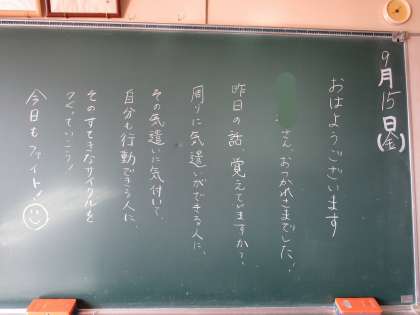 9月15日(金)
おはようございます
さん、おつかれさまでした!
昨日の話、覚えていますか?
周りに気遣いができる人に、
その気遣いに気付いて、
自分も行動できる人に、
そのすてきなサイクルを
つくっていこう!
今日もファイト!